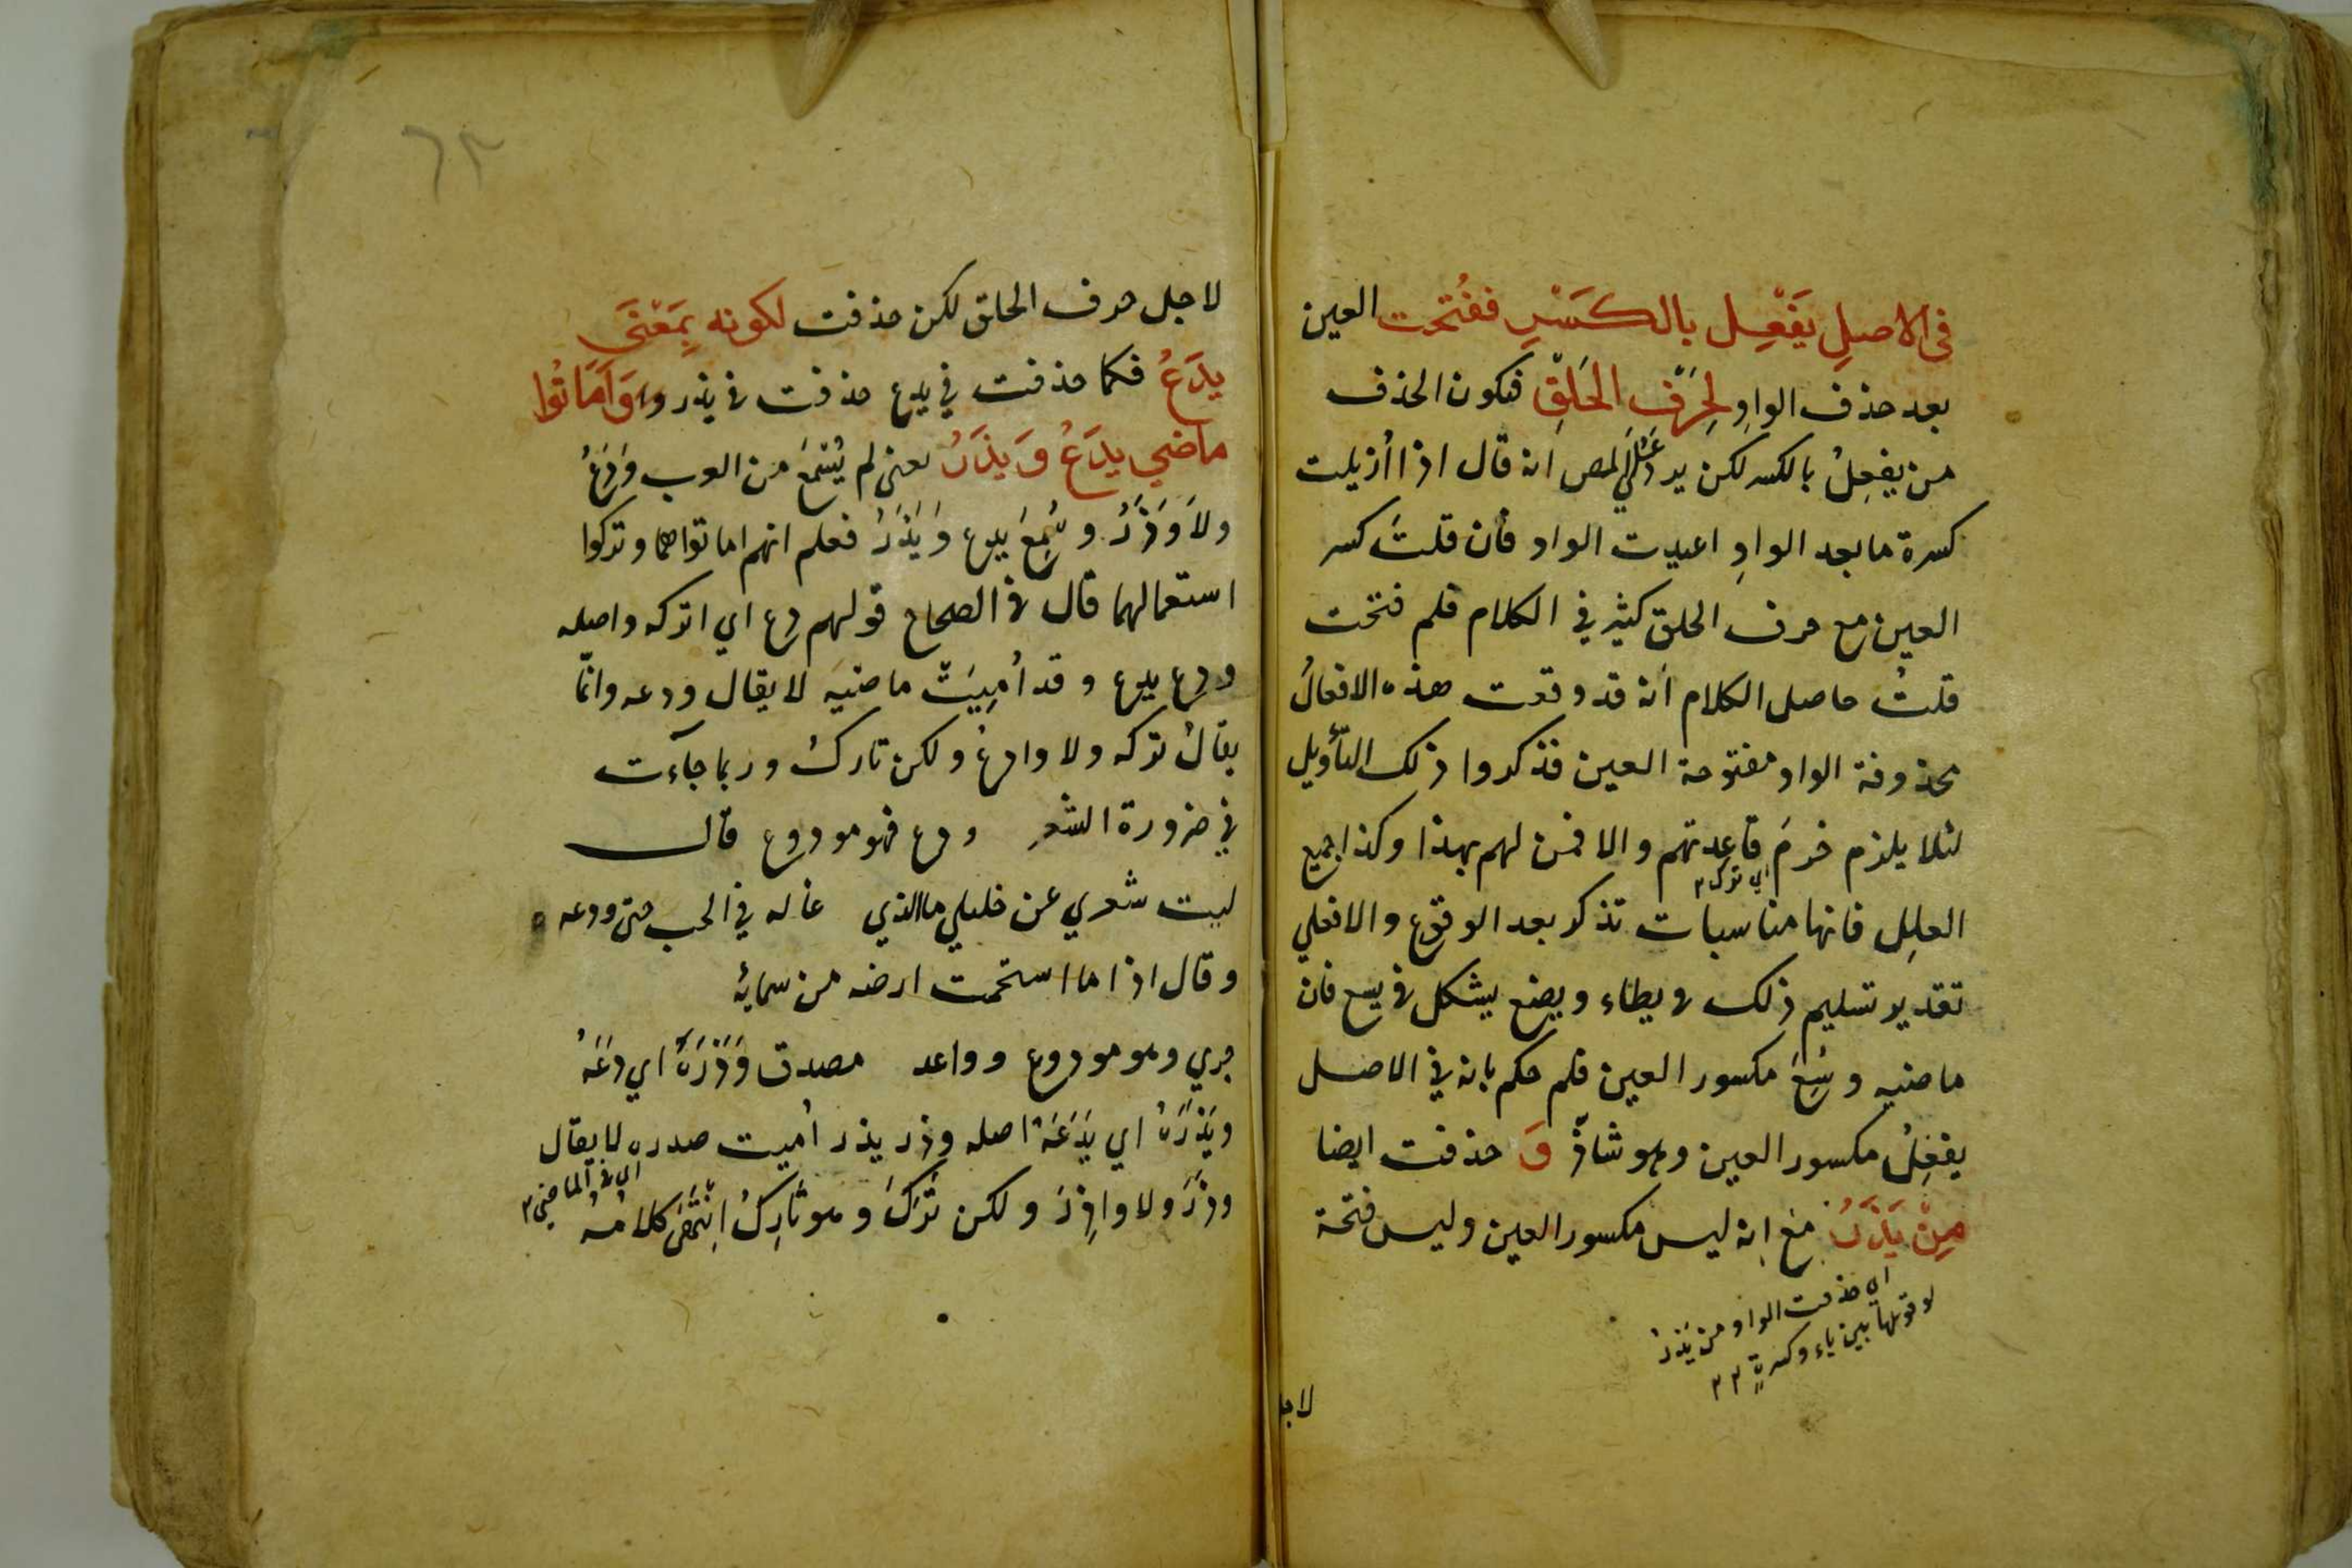 في الاصلِ يَفْعِل بالكَسْرِ ففُتحت العين
بعد حذف الواوِ لِحَرْفِ الحَلْقِ فيكون الحذف
من يفعِلُ بالكسر لكن يرد عَلَي المص انه قال اذا اُزيلت
كسرة ما بعد الواوِ اعيدت الواو فان قلتَ كسر
العين مع حرف الحلق كثير في الكلام فلم فتحت
قلتُ حاصل الكلام اَنه قد وقعت هذه الافعالُ
محذوفة الواو مفتوحة العين فذكروا ذلك التأويل
لئلا يلزم خرمَ قاعدتهم والا فمن لهم بهذا وكذا جميع
اي ترك ٢
العلِل فانها مناسبات تذكر بعد الوقوع والا فعلي
تقدير تسليم ذلك في يطاء ويضع يشكل في يسع فان
ماضيه وسِعَ مكسور العين فلم حكم بانه في الاصل
يفعِلُ مكسور العين وهو شاذّ وَ حذفت ايضا
مِنْ يَذَرُ مع انه ليس مكسور العين وليس فتحة
اي حذفت الواو من يَذرُ
لا قوتها بين ياء وكسرة ٢٢
لاجل
٦٢
لاجل حرف الحلق لكن حذفت لكونه بِمَعْنَى
يدَعُ فكما حذفت في يدع حذفت في يذر وَاَمَاتُوا
ماضي يدَعُ وَ يذَرُ يعني لم يُسْمَعْ من العرب وَدَعُ
ولاَ وَذَرُ و سُمِعَ يدع وَ يَذَرُ فعلم انهم اماتوا هما وتركوا
استعمالهما قال في الصحاح قولهم دع اي اتركه واصله
ودع يدع و قد اُمِيتْ ماضيَه لا يقال ودعه وانما
يقالُ تركه ولا وادعُ ولكن تاركُ وربما جآءت
في ضرورة الشعر ودع فهو مودوع قال
ليت شعري عن خليلي ما الذي غاله في الحب حتى ودعه
وقال اذا ما استحمت ارضه من سمايهٔ
جري وهو مودوع وواعد مصدق وَذَرَهُ اي دَعَهُ
ويَذَرَهُ اي يَدَعَهُ اصله وذر يذر اُميت صدره لا يقال
اي في الماضي ٢
وذَرَ ولا واذِرَ ولكن تَرَكَ وهو تَارِكُ اِنْتَهَى كلامُهُ